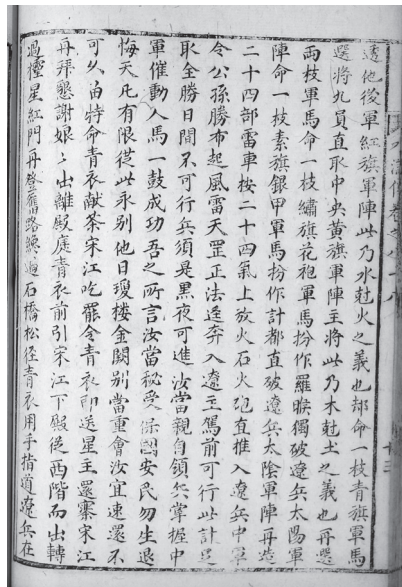 透他後軍紅旗軍陣此乃水尅火之義也却命一枝青旗軍馬
選將九員直取中央黃旗軍陣主將此乃木尅土之義也再選
兩枝軍馬命一枝繡旗花袍軍馬扮作羅睺獨破遼兵太陽軍
陣命一枝素旗銀甲軍馬扮作計都直破遼兵太陰軍陣再造
二十四部雷車按二十四氣上放火石火砲直推入遼兵中軍
令公孫勝布起風雷天罡正法逕奔入遼主駕前可行此計足
取全勝日間不可行兵須是黑夜可進汝當親自領兵掌握中
軍催動人馬一鼓成功吾之所言汝當秘受保國安民勿生退
悔天凡有限從此永別他日瓊樓金闕別當重會汝宜速還不
可久留特命青衣献茶宋江吃罷令青衣即送星主還寨宋江
再拜懇謝娘〻出離殿庭青衣前引宋江下殿從西階而出轉
過櫺星紅門再登舊路纔過石橋松徑青衣用手指道遼兵在
水滸傳卷之八十八
十三